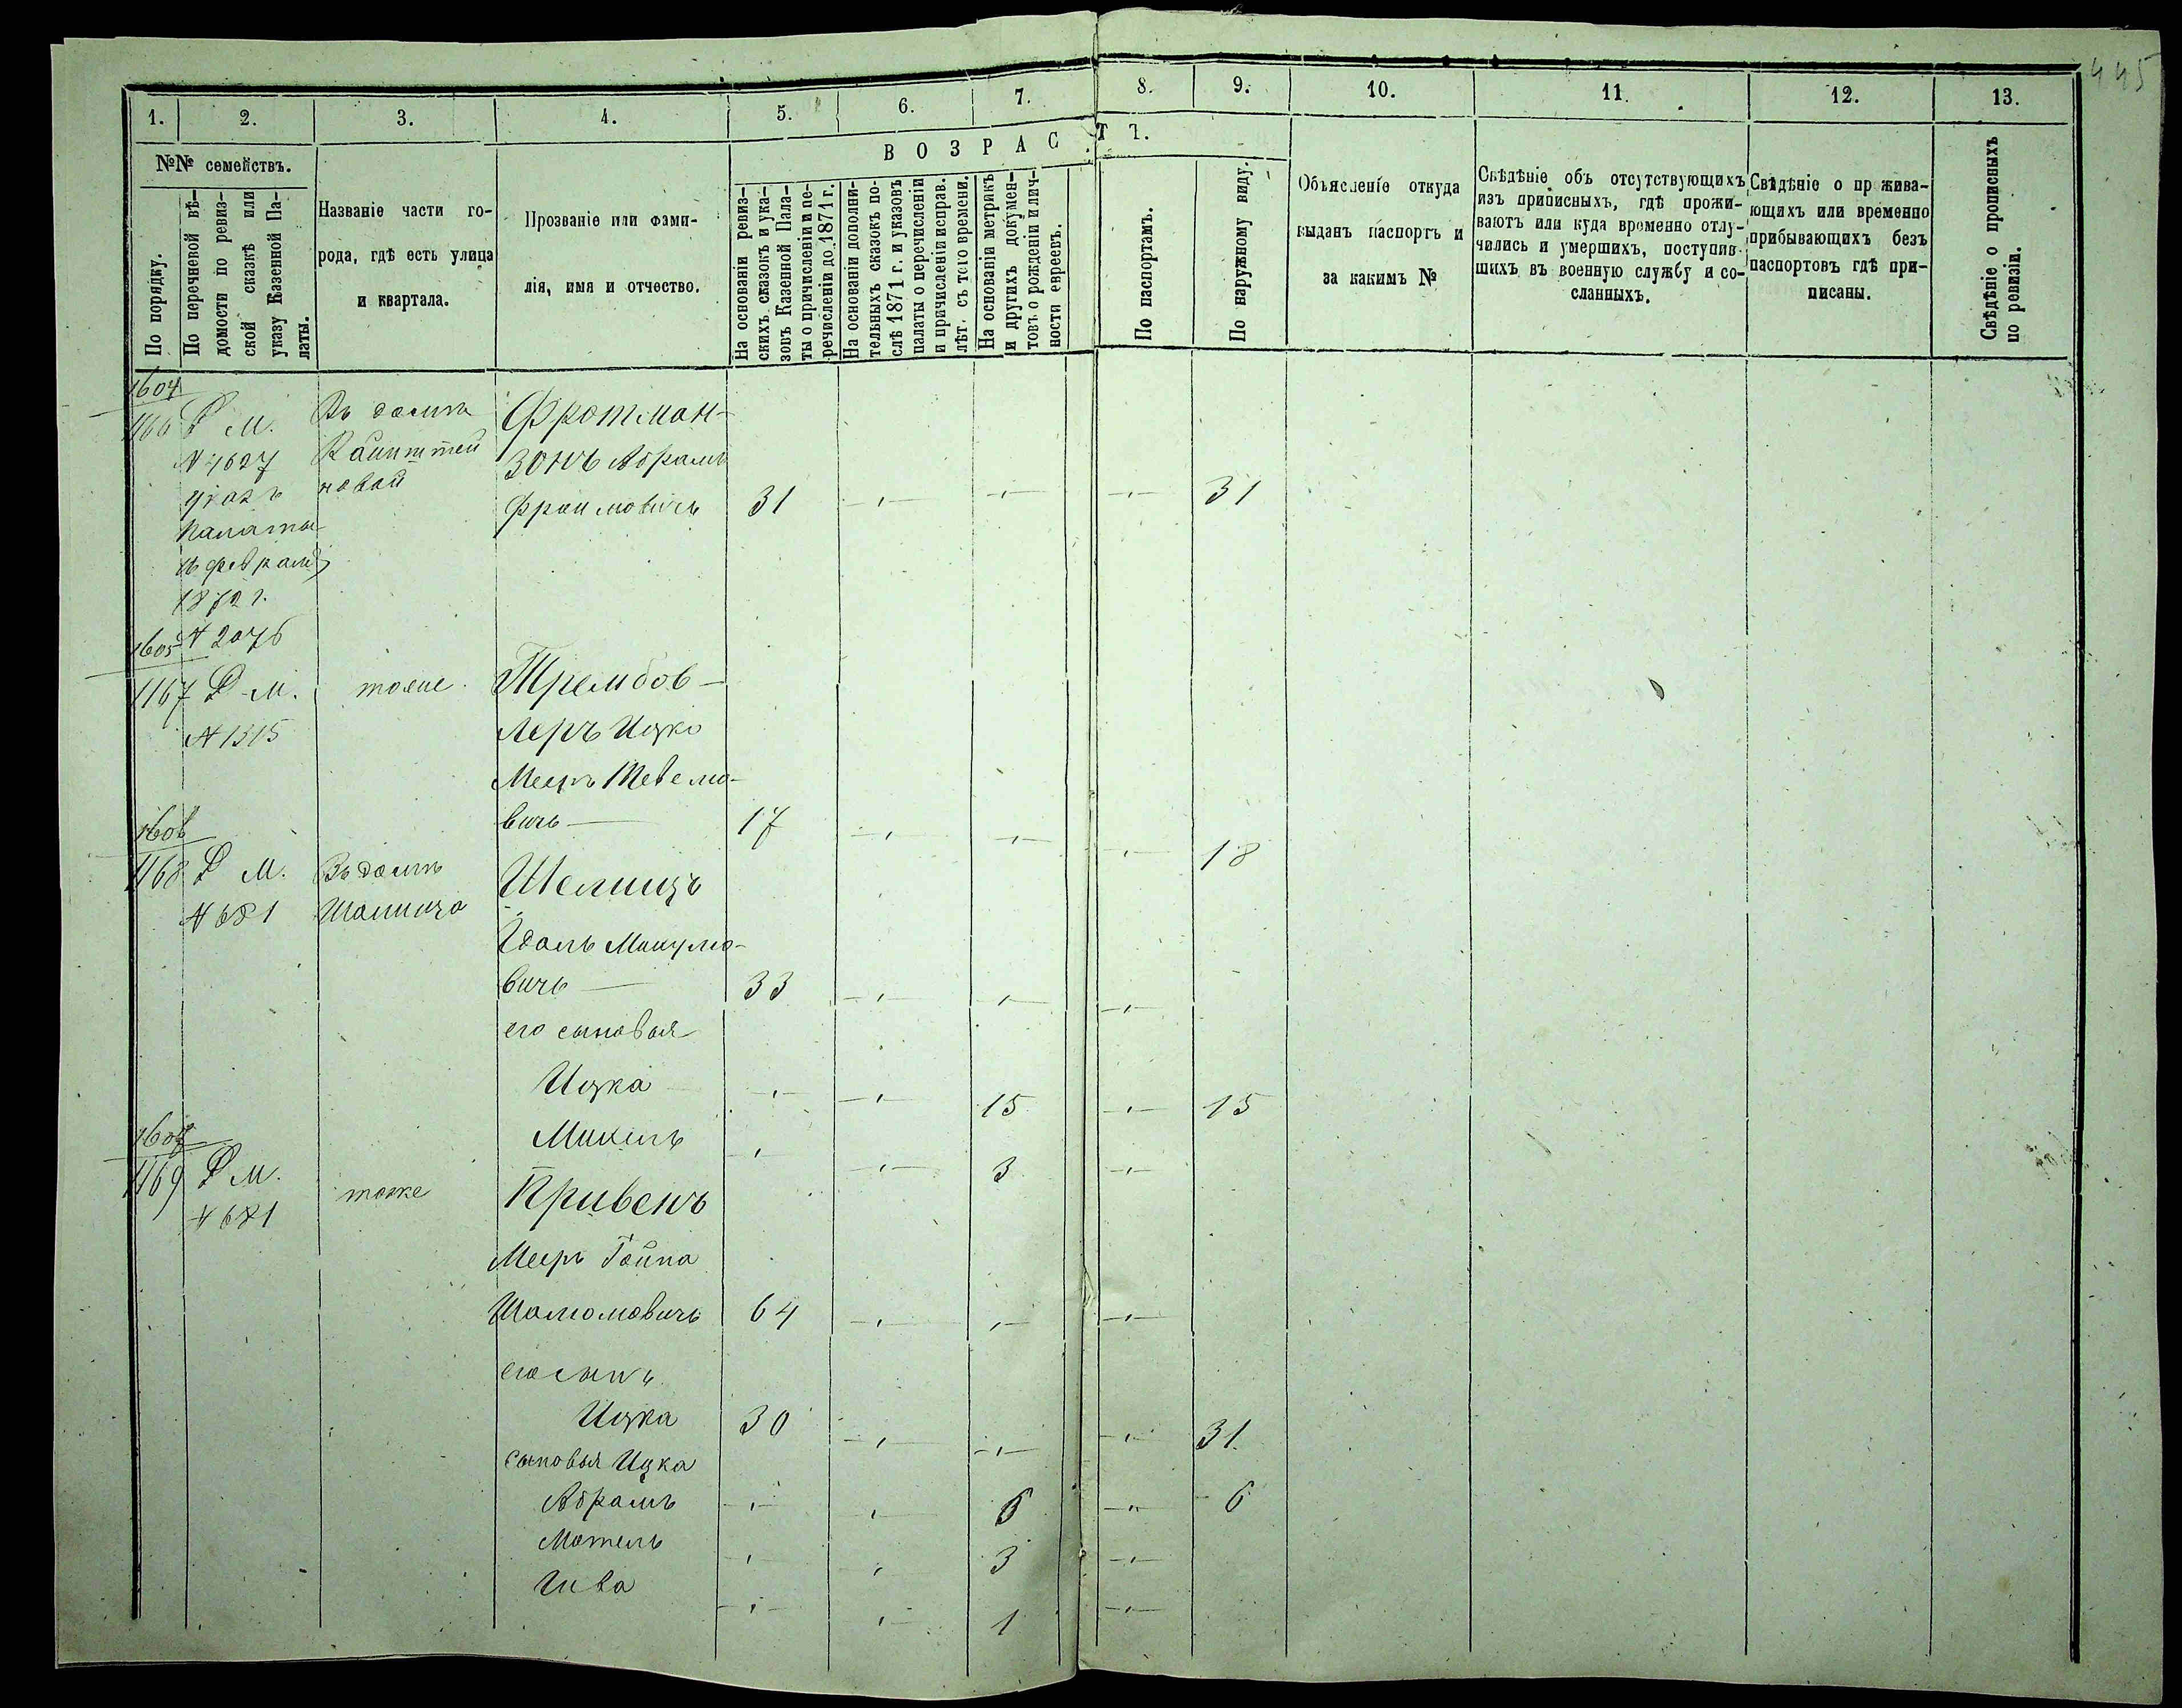 445
1. 2. 3. 4. 5. 6. 7. 8. 9. 10. 11. 12. 13.
№№ семействъ.
В О З Р А С Т Ъ.
По порядку.
По перечневой вѣ-
домости по ревиз-
ской сказкѣ или
указу Казенной Па-
латы.
Названіе части го-
рода, гдѣ есть улица
и квартала.
Прозваніе или фами-
лія, имя и отчество.
На основаніи ревиз-
скихъ сказокъ и ука-
зовъ Казенной Пала-
ты о причисленіи и пе-
речисленіи до 1871 г.
На основаніи дополни-
тельныхъ сказокъ по-
слѣ 1871 г. и указовъ
палаты о перечисленіи
и причисленіи исправ.
лѣт. съ того времени.
На основаніи метрикъ
и другихъ докумен-
товъ о рожденіи и лич-
ности евреевъ.
По паспортамъ.
По наружному виду.
Объясленіе откуда
выданъ паспортъ и
за какимъ №
Свѣдѣніе объ отсутствующихъ
изъ приписныхъ, гдѣ прожи-
ваютъ или куда временно отлу-
чились и умершихъ, поступив-
шихъ въ военную службу и со-
сланныхъ.
Свѣдѣніе о пр жива-
ющихъ или временно
прибывающихъ безъ
паспортовъ гдѣ при-
писаны.
Свѣдѣніе о прописныхъ
по ревизіи.
1604
1166 Д М. Въ домѣ Фротман-
N 4627 зонъ Абрамъ
указъ новой Фроимовичъ 31 31
Палаты
февраля
1872 г.
1605 N 2076
1167 Д М. тоже Трембов-
N 1515 леръ Ицко
Мееръ Тевелю-
вичъ 17 18
1606
1168 Д М. Въ домѣ Шемицъ
N 681
Гдаль
вичъ 33
его сыновья
Ицка 15 15
Михель 3
1607
1169 Д М. тоже Кривенъ
N 681
Мееръ
Шолюмовичъ 64
его сынъ
Ицка 30 31
сыновья Ицка
Абрамъ 6 6
Мотель 3
1